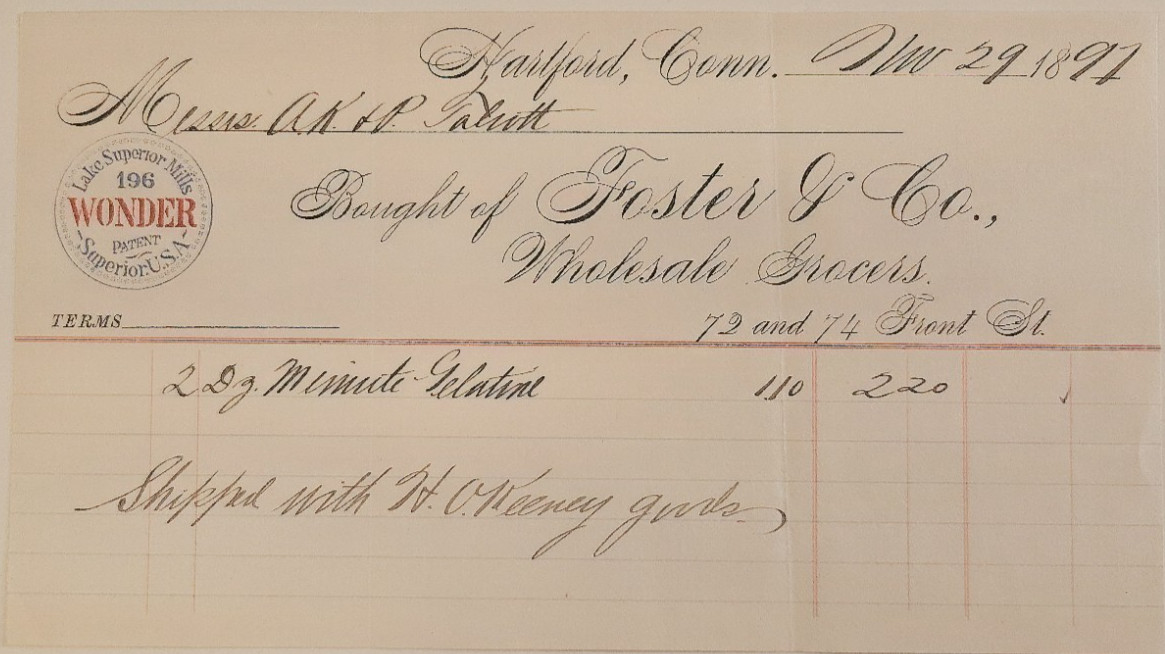 Hartford, Conn. Nov 29 1897
Messrs. A.K. & P. Talcott
Lake Superior Mills
196
WONDER
PATENT
Superior. U.S.A.
Bought of Foster & Co.,
Wholesale Grocers.
TERMS
72 and 74 Front St.
2 Dz. Minute Gelatine 1.10 2 20
Shipped with H. O. Keeney goods